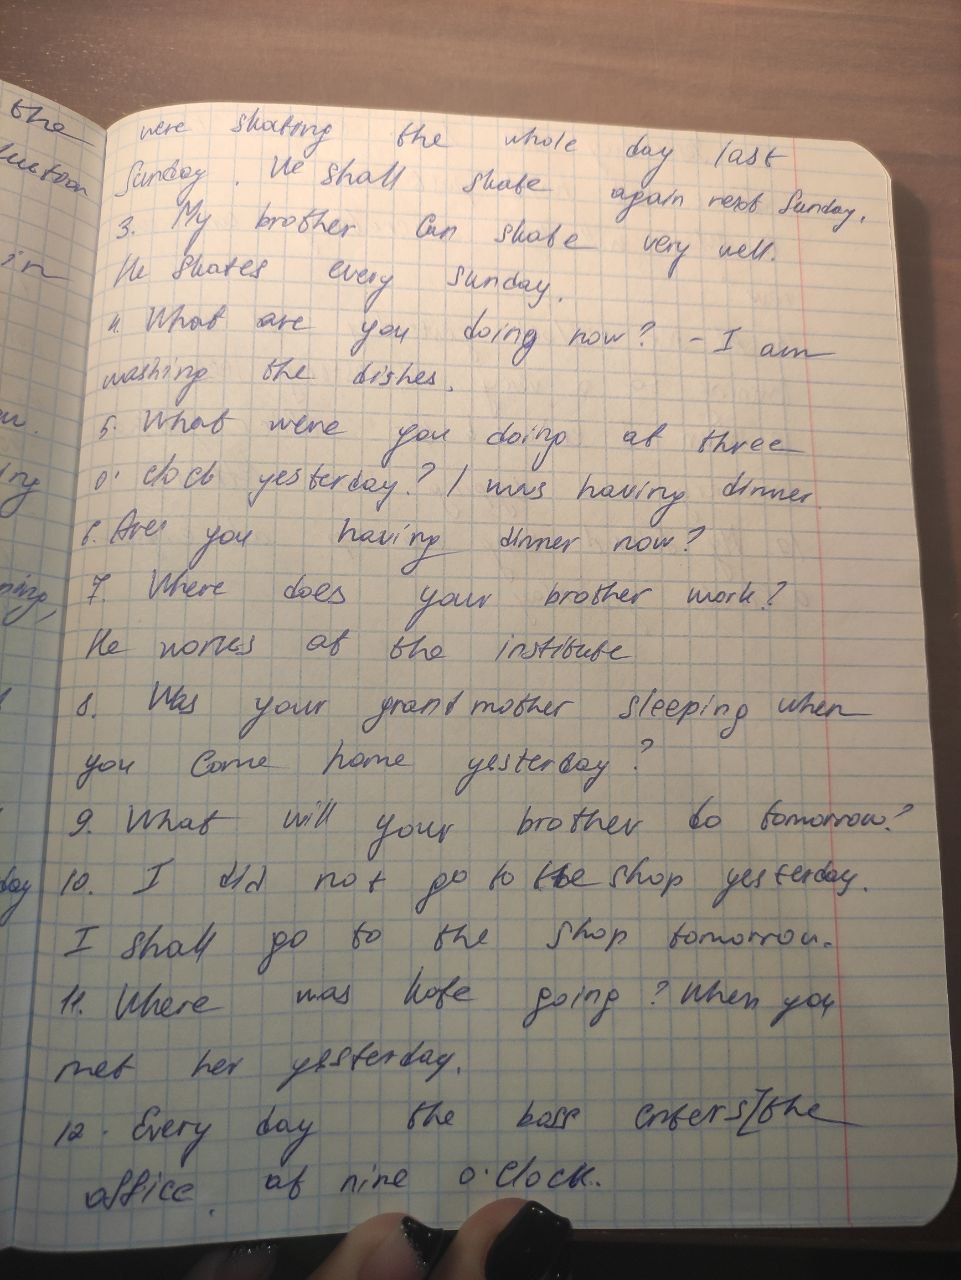 the
in
were skating the whole day last
Sunday. We shall skate again next Sunday.
3. My brother can skate very well.
He skates every Sunday.
4. What are you doing now? - I am
washing the dishes.
5. What were you doing at three
o'clock yesterday? I was having dinner
6. Are you having dinner now?
7. Where does your brother work?
He works at the institute
8. Was your grandmother sleeping when
you come home yesterday?
9. What will your brother do tomorrow?
10. I did not go to the shop yesterday.
I shall go to the shop tomorrow.
11. Where was Kate going? When you
met her yesterday.
12. Every day the boss enters [the
office. at nine o'clock.